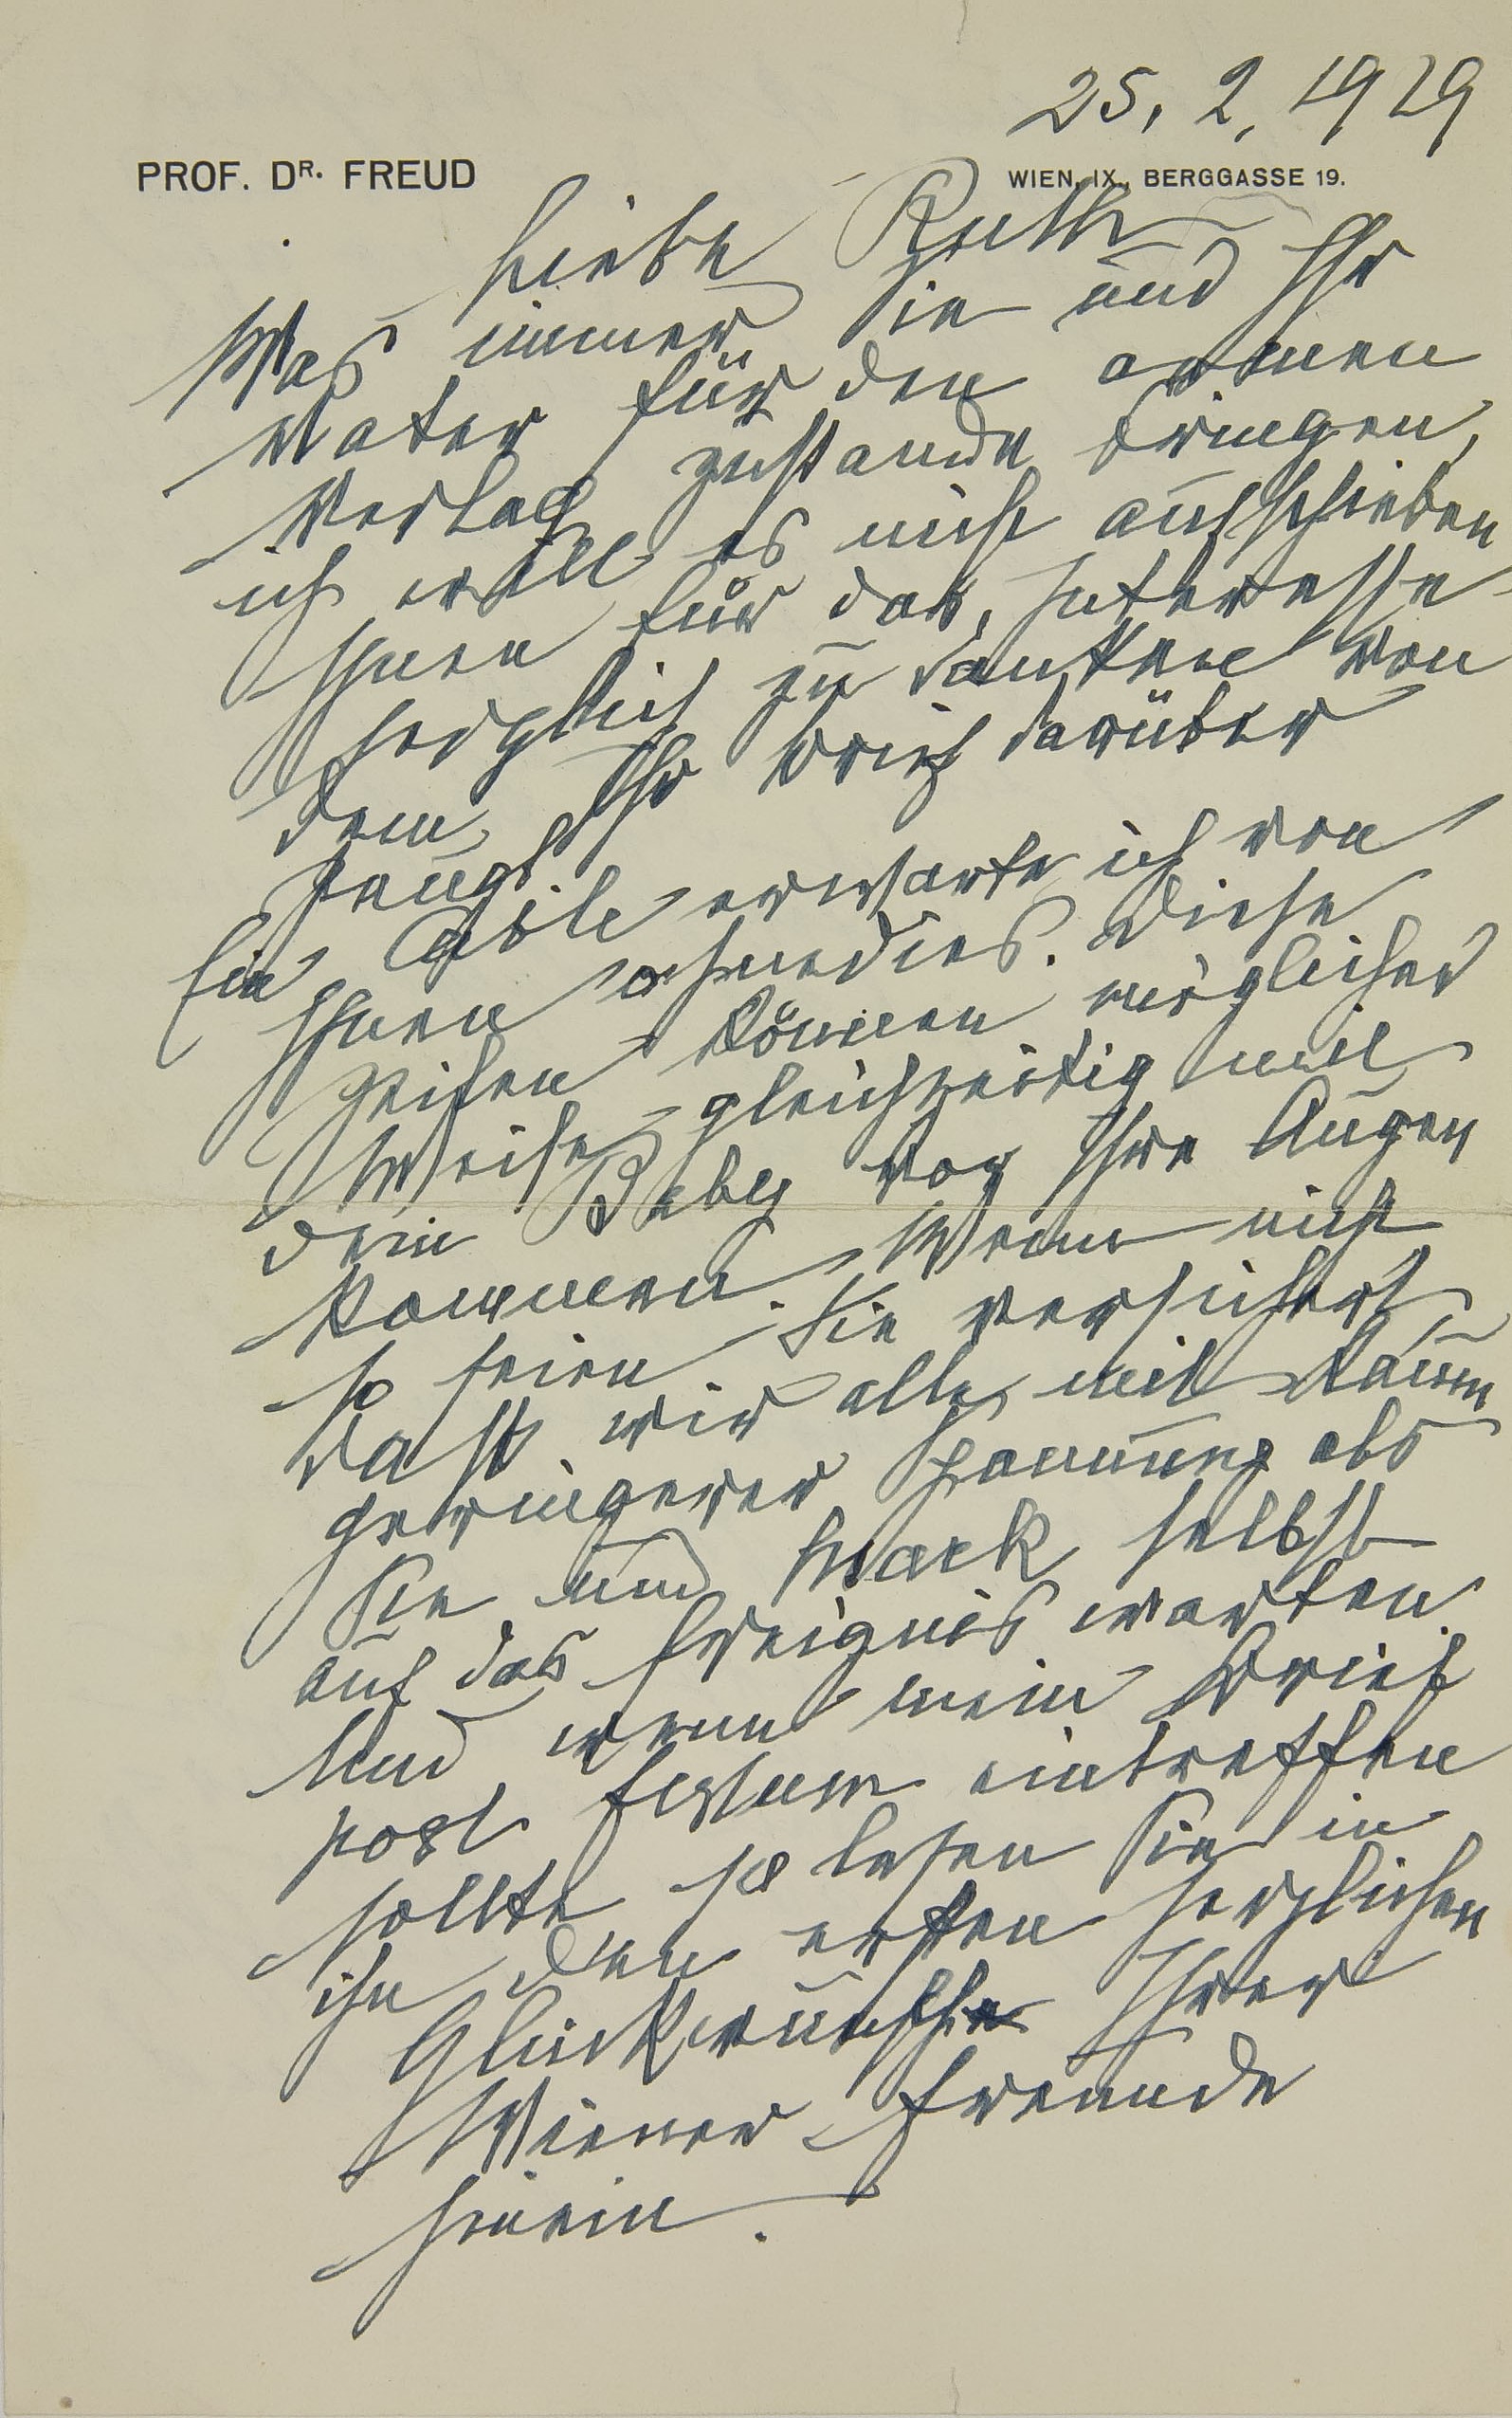 25. 2. 1929
PROF. DR. FREUD WIEN, IX., BERGGASSE 19.
Liebe Ruth
Was immer Sie und Ihr
Vater für den armen
Verlag zustande bringen,
ich will es nicht aufschieben
Ihnen für das Interesse
herzlich zu danken von
dem Ihr Brief darüber
zeugt.
Ein Cable erwarte ich von
Ihnen ohnedies. Diese
Zeilen können möglicher
Weise gleichzeitig mit
dem Baby vor Ihre Augen
kommen. Wenn nicht
so seien Sie versichert,
daß wir alle mit kaum
geringerer Spannung als
Sie und Mark selbst
auf das Ereignis warten.
Und wenn mein Brief
post festum eintreffen
sollte so lesen Sie in
ihn den ersten herzlichen
Glückwunsch Ihrer
Wiener Freunde
hinein.